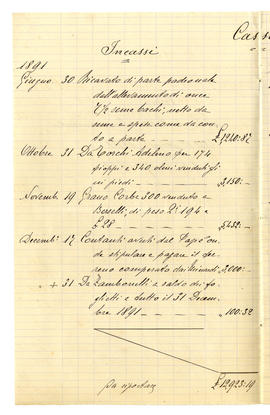 Cass
Incassi
1891
Giugno 30 Ricavato di parte padronale
dall'allevamento di once
7 1/2 seme bachi, netto da
seme e spese come da con
to a parte £ 1240:87
Ottobre 31 Da Adelmo per 174
pioppi e 340 olmi vendutigli
in piedi 3,150:-
Novemb. 19 Grano Corbe 300 venduto a
Bersetti, di peso 194 a
£ 28 5432:-
Decemb. 17 Contanti avuti dal on
de stipulare e pagare il ter
reno comperato dai 3,000:-
+ 31 Da Zambonelli a saldo di fo
glietti a tutto il 31 Decem
bre 1891 100:32
£ 12,923:19
Da riportare